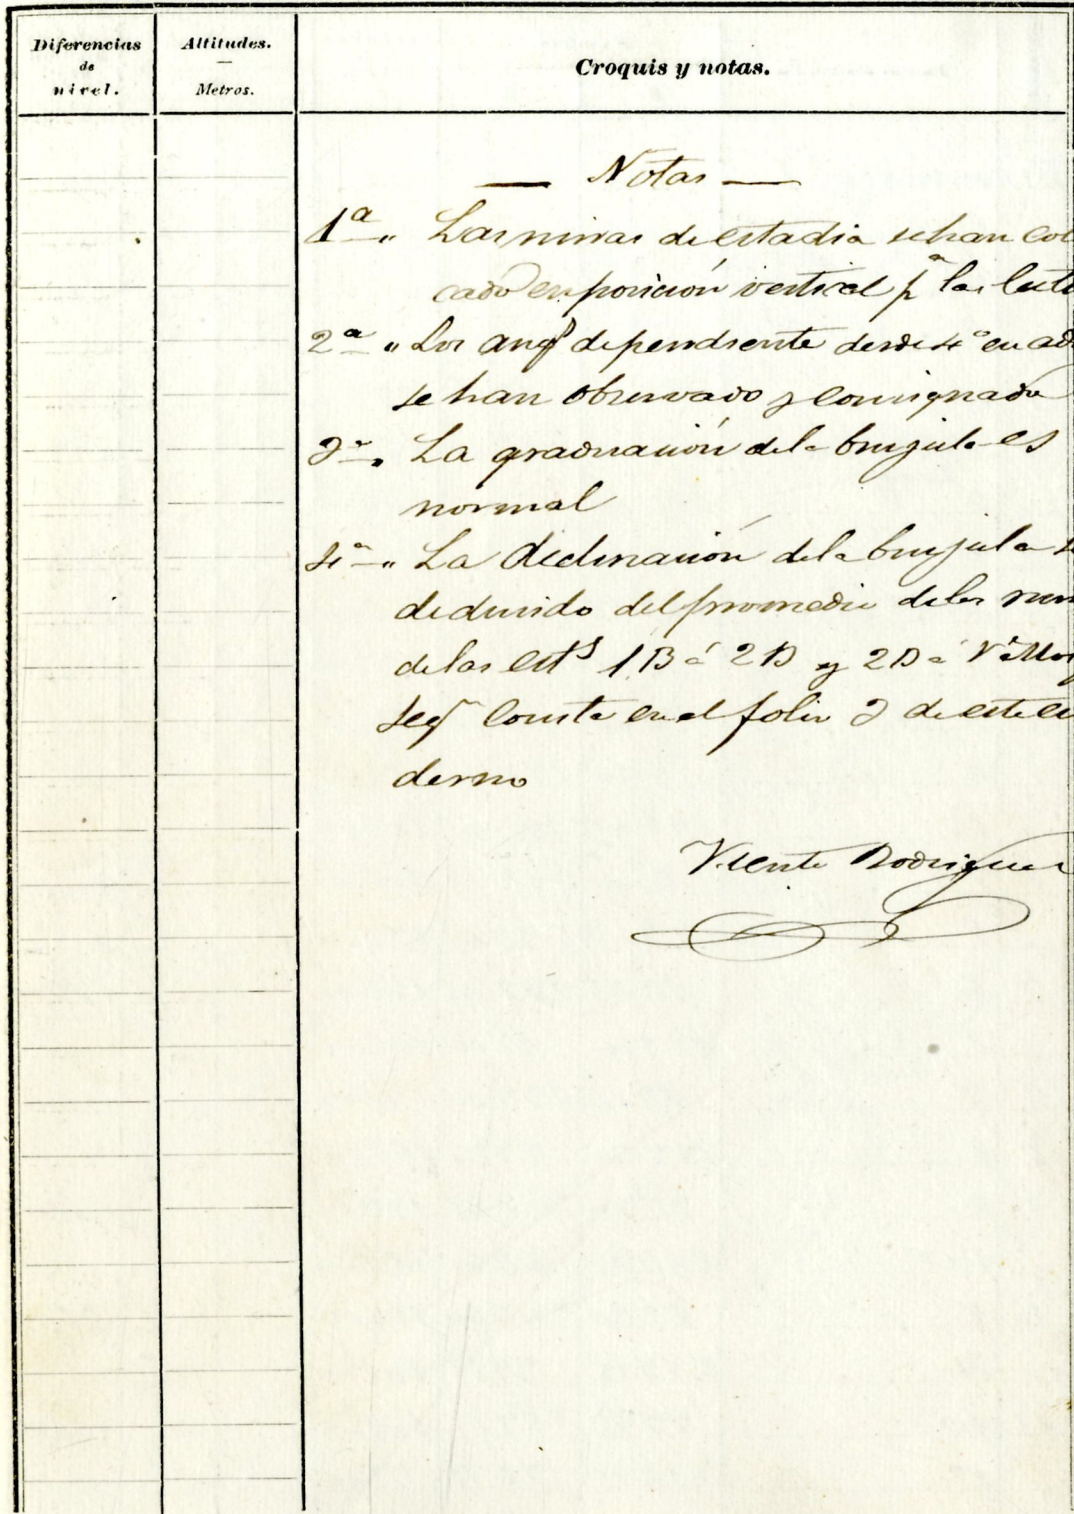 Diferencias
de
nivel.
Altitudes.
Metros.
Croquis y notas.
— Notas —
1ª " Las miras de estadia se han colo
cado en posición vertical pª las lect
2ª " Los angˢ de pendiente desde 4º en ad
se han observado y consignado
3ª " La graduación de la brujula es
normal
4ª " La declinación de la brujula s
deducido del promedio de los rum
de las estˢ 1B á 2B y 2B á
seg consta en el folio 3 de este cu
derno
Vicente Rodriguez